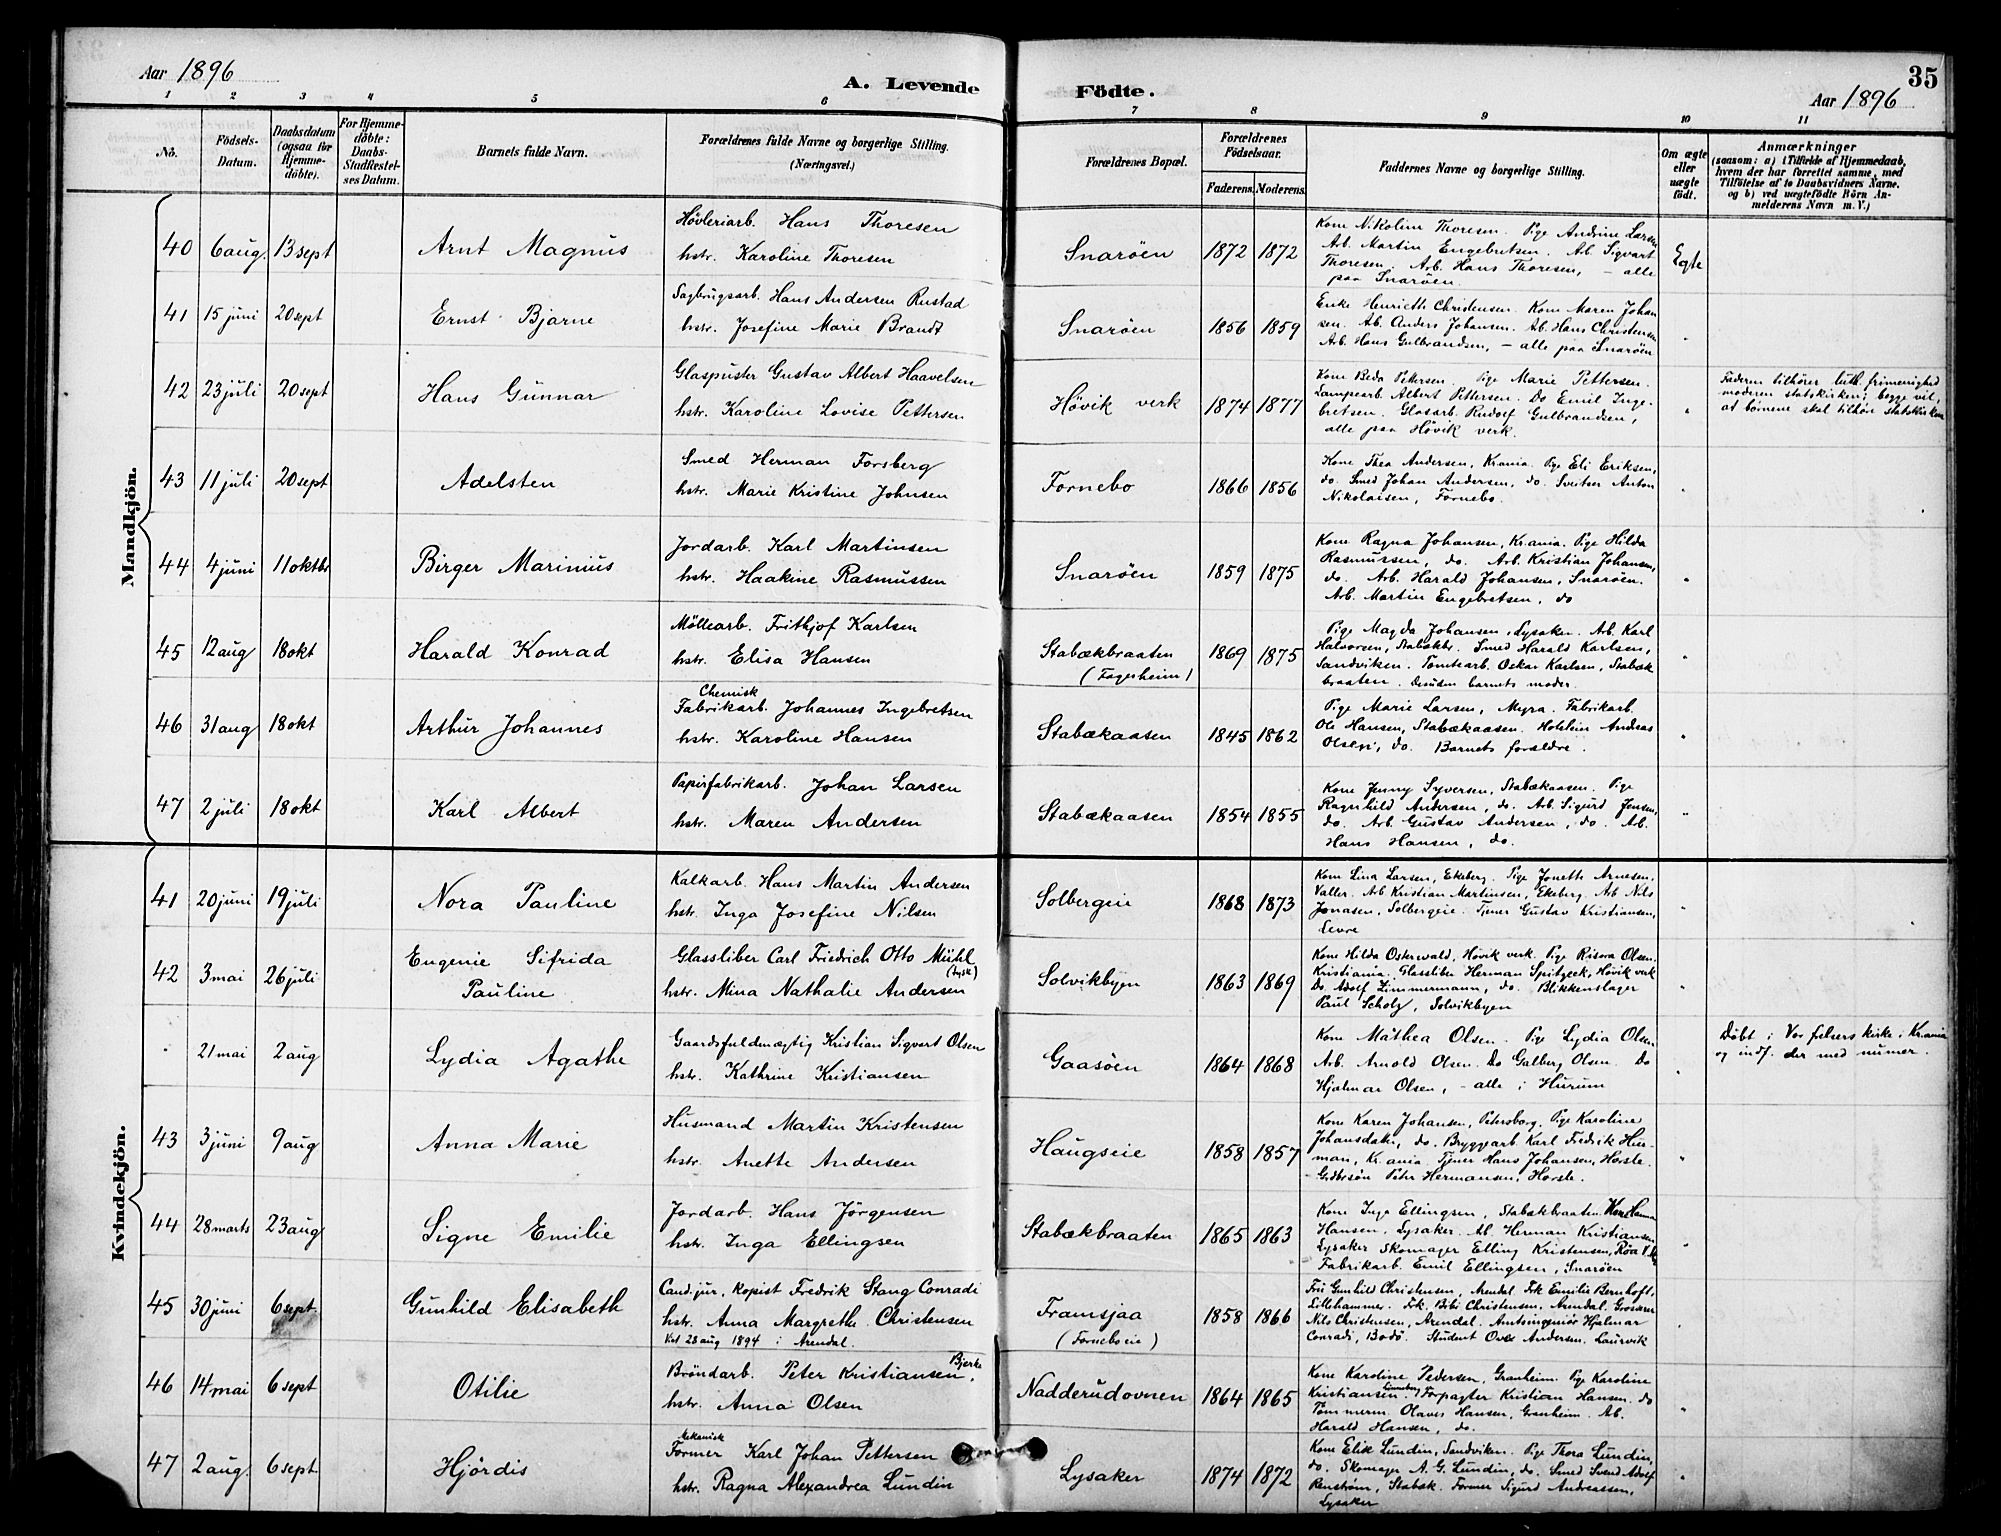 Aar 1896
A. Levende Födte.
Aar 1896
35
1 2 3 4 5 6 7 8 9 10 11
No.
Födsels-Datum.
Daabsdatum (ogsaa for Hjemme-döbte).
For Hjemme-döbte: Daabs-Stadfæstel-ses Datum.
Barnets fulde Navn.
Forældrenes fulde Navne og borgerlige Stilling.
(Næringsvei.)
Forældrenes Bopæl.
Forældrenes Födselsaar.
Faderens. Moderens.
Faddernes Navne og borgerlige Stilling.
Om ægte eller uægte födt.
Anmærkninger
(saasom: a) i Tilfælde af Hjemmedaab, hvem der har forrettet samme, med Tilföielse af to Daabsvidners Navne. og b) ved uægtefödte Börn An-melderens Navn m. V.)
Mandkjön.
40 6 aug. 13 sept Arnt Magnus
Høvleriarb. Hans Thoresen
hstr. Karoline Thoresen
Snarøen 1872 1872
Kone Nikoline Thoresen. Pige Andrine Larsen
Arb. Martin Engebretsen. Arb. Sigvart
Thoresen. Arb. Hans Thoresen, – alle
paa Snarøen.
Egte
41 15 juni 20 sept Ernst Bjarne
Sagbrugsarb. Hans Andersen Rustad
hstr. Josefine Marie Brandt
Snarøen 1856 1859
Enke Henriette Christensen. Kone Maren Johan
sen. Arb. Anders Johansen. Arb. Hans Christensen
Arb. Hans Gulbrandsen, – alle paa Snarøen
"
42 23 juli 20 sept Hans Gunnar
Glaspuster Gustav Albert Haavelsen
hstr. Karoline Lovise Pettersen
Høvik verk 1874 1877
Kone Beda Pettersen. Pige Marie Pettersen.
Lampearb. Albert Pettersen. Do Emil Inge-
bretsen. Glasarb. Rudolf Gulbrandsen,
alle paa Høvik verk.
"
Faderen tilhører luth. frimenighed
moderen statskirken; begge vil,
at børnene skal tilhøre statskirken
43 11 juli 20 sept Adelsten
Smed Herman Forsberg
hstr. Marie Kristine Johnsen
Fornebo 1866 1856
Kone Thea Andersen, Kr.ania. Pige Eli Eriksen,
do. Smed Johan Andersen, do. Sveitser Anton
Nikolaisen, Fornebo.
"
44 4 juni 11 oktbr Birger Marinius
Jordarb. Karl Martinsen
hstr. Haakine Rasmussen
Snarøen 1859 1875
Kone Ragna Johansen, Kr.ania. Pige Hilda
Rasmussen, do. Arb. Kristian Johansen,
do. Arb. Harald Johansen, Snarøen.
Arb. Martin Engebretsen, do
"
45 12 aug 18 okt Harald Konrad
Möllearb. Frithjof Karlsen
hstr. Elisa Hansen
Stabækbraaten
(Fagerheim)
1869 1875
Pige Magda Johansen, Lysaker. Arb. Karl
Halvorsen, Stabækbr. Smed Harald Karlsen,
Sandviken. Tomtearb. Oskar Karlsen, Stabæk
braaten. Desuden barnets moder.
"
46 31 aug 18 okt Arthur Johannes
Chemisk
Fabrikarb. Johannes Ingebretsen
hstr. Karoline Hansen
Stabækaasen 1845 1862
Pige Marie Larsen, Myra. Fabrikarb.
Ole Hansen, Stabækaasen. Andreas
Olsen, do. Barnets forældre.
"
47 2 juli 18 okt Karl Albert
Papirfabrikarb. Johan Larsen
hstr. Maren Andersen
Stabækaasen 1854 1855
Kone Jenny Syversen, Stabækaasen. Pige
Ragnhild Andersen, do. Arb. Sigurd Jensen,
do. Arb. Gustav Andersen, do. Arb.
Hans Hansen, do.
"
Kvindekjön.
41 20 juni 19 juli Nora Pauline
Kalkarb. Hans Martin Andersen
hstr. Inga Josefine Nilsen
Solbergeie 1868 1873
Kone Lina Larsen, Ekeberg. Pige Jonette Arnesen,
Valler. Arb Kristian Martinsen, Ekeberg. Arb Nils
Jonasen, Solbergeie. Tjener Gustav Kristiansen,
Levre
"
42 3 mai 26 juli Eugenie Sifrida
Pauline
Glassliber Carl Friedrich Otto Mühl
(tysk)
hstr. Mina Nathalie Andersen
Solvikbyen 1863 1869
Kone Hilda Osterwald, Høvik verk. Pige Olsen,
Kristiania. Glassliber Herman Spitzeck, Høvik verk
Do. Adolf Zimmermann, do. Blikkenslager
Paul Scholz, Solvikbyen
"
21 mai 2 aug Lydia Agathe
Gaardsfuldmægtig Kristian Sigvart Olsen
hstr. Kathrine Kristiansen
Gaasøen 1864 1868
Kone Mathea Olsen. Pige Lydia Olsen
Arb. Arnold Olsen. Do Galberg Olsen. Do
Hjalmar Olsen, – alle i Hurum
"
Døbt i Vor frelsers kirke, Kr.ania
og indf. der med numer.
43 3 juni 9 aug Anna Marie
Husmand Martin Kristensen
hstr. Anette Andersen
Haugseie 1858 1857
Kone Karen Johansen, Petersborg. Pige Karoline
Johansdatter, do. Bryggearb. Karl Fredrik Hus-
man, Kr.ania. Tjener Hans Johansen, Horsle.
Gdbrsön Peter Hermansen, Horsle.
"
44 28 marts 23 aug Signe Emilie
Jordarb. Hans Jörgensen
hstr. Inga Ellingsen
Stabækbraaten 1865 1863
Kone Inga Ellingsen, Stabækbraaten. Kone Hanna
Hansen, Lysaker. Arb. Herman Kristiansen
Lysaker Skomager Elling Kristensen, Røa
Fabrikarb. Emil Ellingsen, Snarøen
"
45 30 juni 6 sept. Gunhild Elisabeth
Cand. jur., kopist Fredrik Stang Conradi
hstr. Anna Margrethe Christensen
Viet 28 aug 1894 i Arendal.
Framsjaa
(Forneboeie)
1858 1866
Fru Gunhild Christensen, Arendal. Frk Emilie Bernhoft,
Lillehammer. Frk. Bibi Christensen, Arendal. Grosserer
Nils Christensen, Arendal. Amtsingeniør Hjalmar
Conradi, Bodö. Student Ove Andersen, Laurvik
"
46 14 mai 6 sept Otilie
Bröndarb. Peter Kristiansen Bjerke,
hstr. Anna Olsen
Nadderudovnen 1864 1865
Kone Karoline Pedersen, Granheim. Pige Karoline
Kristiansen. Forpagter Kristian Hansen. do
Tömmerm. Olaves Hansen, Granheim. Arb.
Harald Hansen, do.
"
47 2 aug. 6 sept Hjördis
Mekanisk
Former Karl Johan Pettersen
hstr. Ragna Alexandrea Lundin
Lysaker 1874 1872
Kone Elise Lundin, Sandviken. Pige Thora Lundin,
do. Skomager A. G. Lundin, do. Smed Svend Adolf
Renström, Stabæk. Former Sigurd Andreassen,
Lysaker
"